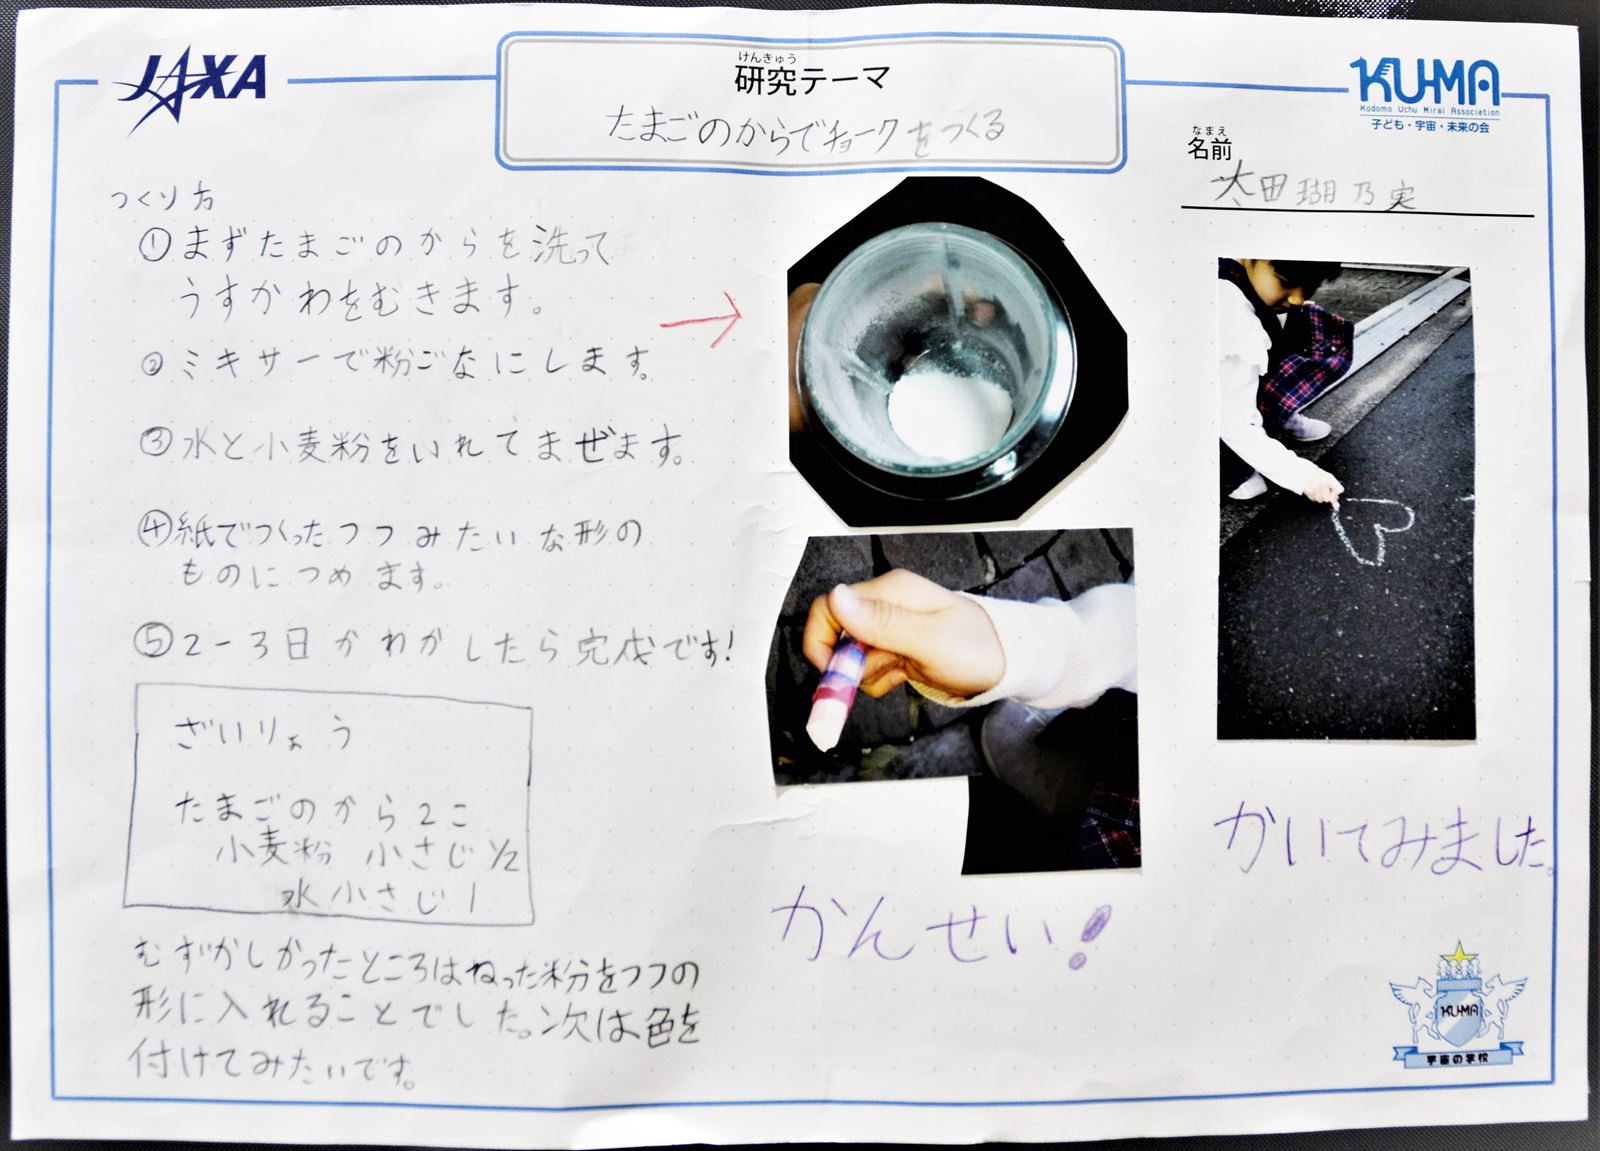 JAXA
けんきゅう
研究テーマ
たまごのからでチョークをつくる
KU-MA
Kodomo Uchu Mirai Association
子ども・宇宙・未来の会
なまえ
名前
太田瑚乃実
つくり方
①まずたまごのからを洗って
うすかわをむきます。
②ミキサーで粉ごなにします。
③水と小麦粉をいれてまぜます。
④紙でつくったつつみたいな形の
ものにつめます。
⑤2-3日かわかしたら完成です!
ざいりょう
たまごのから2こ
小麦粉 小さじ1/2
水小さじ1
むずかしかったところはねった粉をつつの
形に入れることでした。次は色を
付けてみたいです。
かんせい!
かいてみました。
KU-MA
宇宙の学校